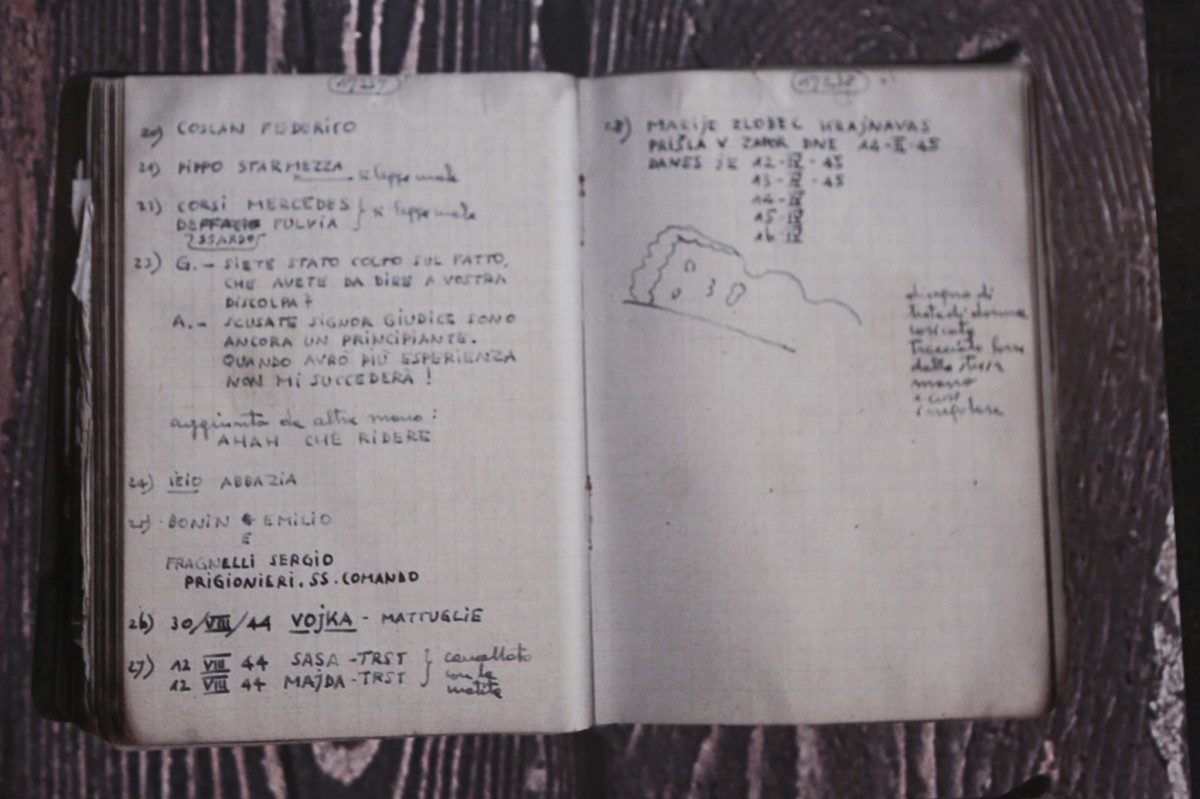 20) COSLAN FEDERICO
21) PIPPO STARMEZZA
22) CORSI MERCEDES
FULVIA
23) G. - SIETE STATO COLTO SUL FATTO,
CHE AVETE DA DIRE A VOSTRA
DISCOLPA?
A. - SCUSATE SIGNOR GIUDICE SONO
ANCORA UN PRINCIPIANTE.
QUANDO AVRÒ PIÙ ESPERIENZA
NON MI SUCCEDERÀ!
aggiunta da altra mano:
AHAH CHE RIDERE
24) ICIO ABBAZIA
25) BONIN EMILIO
E
FRAGNELLI SERGIO
PRIGIONIERI. SS. COMANDO
26) 30/VIII/44 VOJKA - MATTUGLIE
27) 12 VIII 44 SASA - TRST } cancellato
12 VIII 44 MAJDA - TRST con la
matita
28) MARIJE ZLOBEC KRAJNAVAS
PRIŠLA V ZAPOR DNE 14-II-45
DANES JE 12-IV-45
13-IV-45
14-IV
15-IV
16-IV
disegno di
testa di donna
coricata
tracciato forse
dalla stessa
mano
e così
irregolare